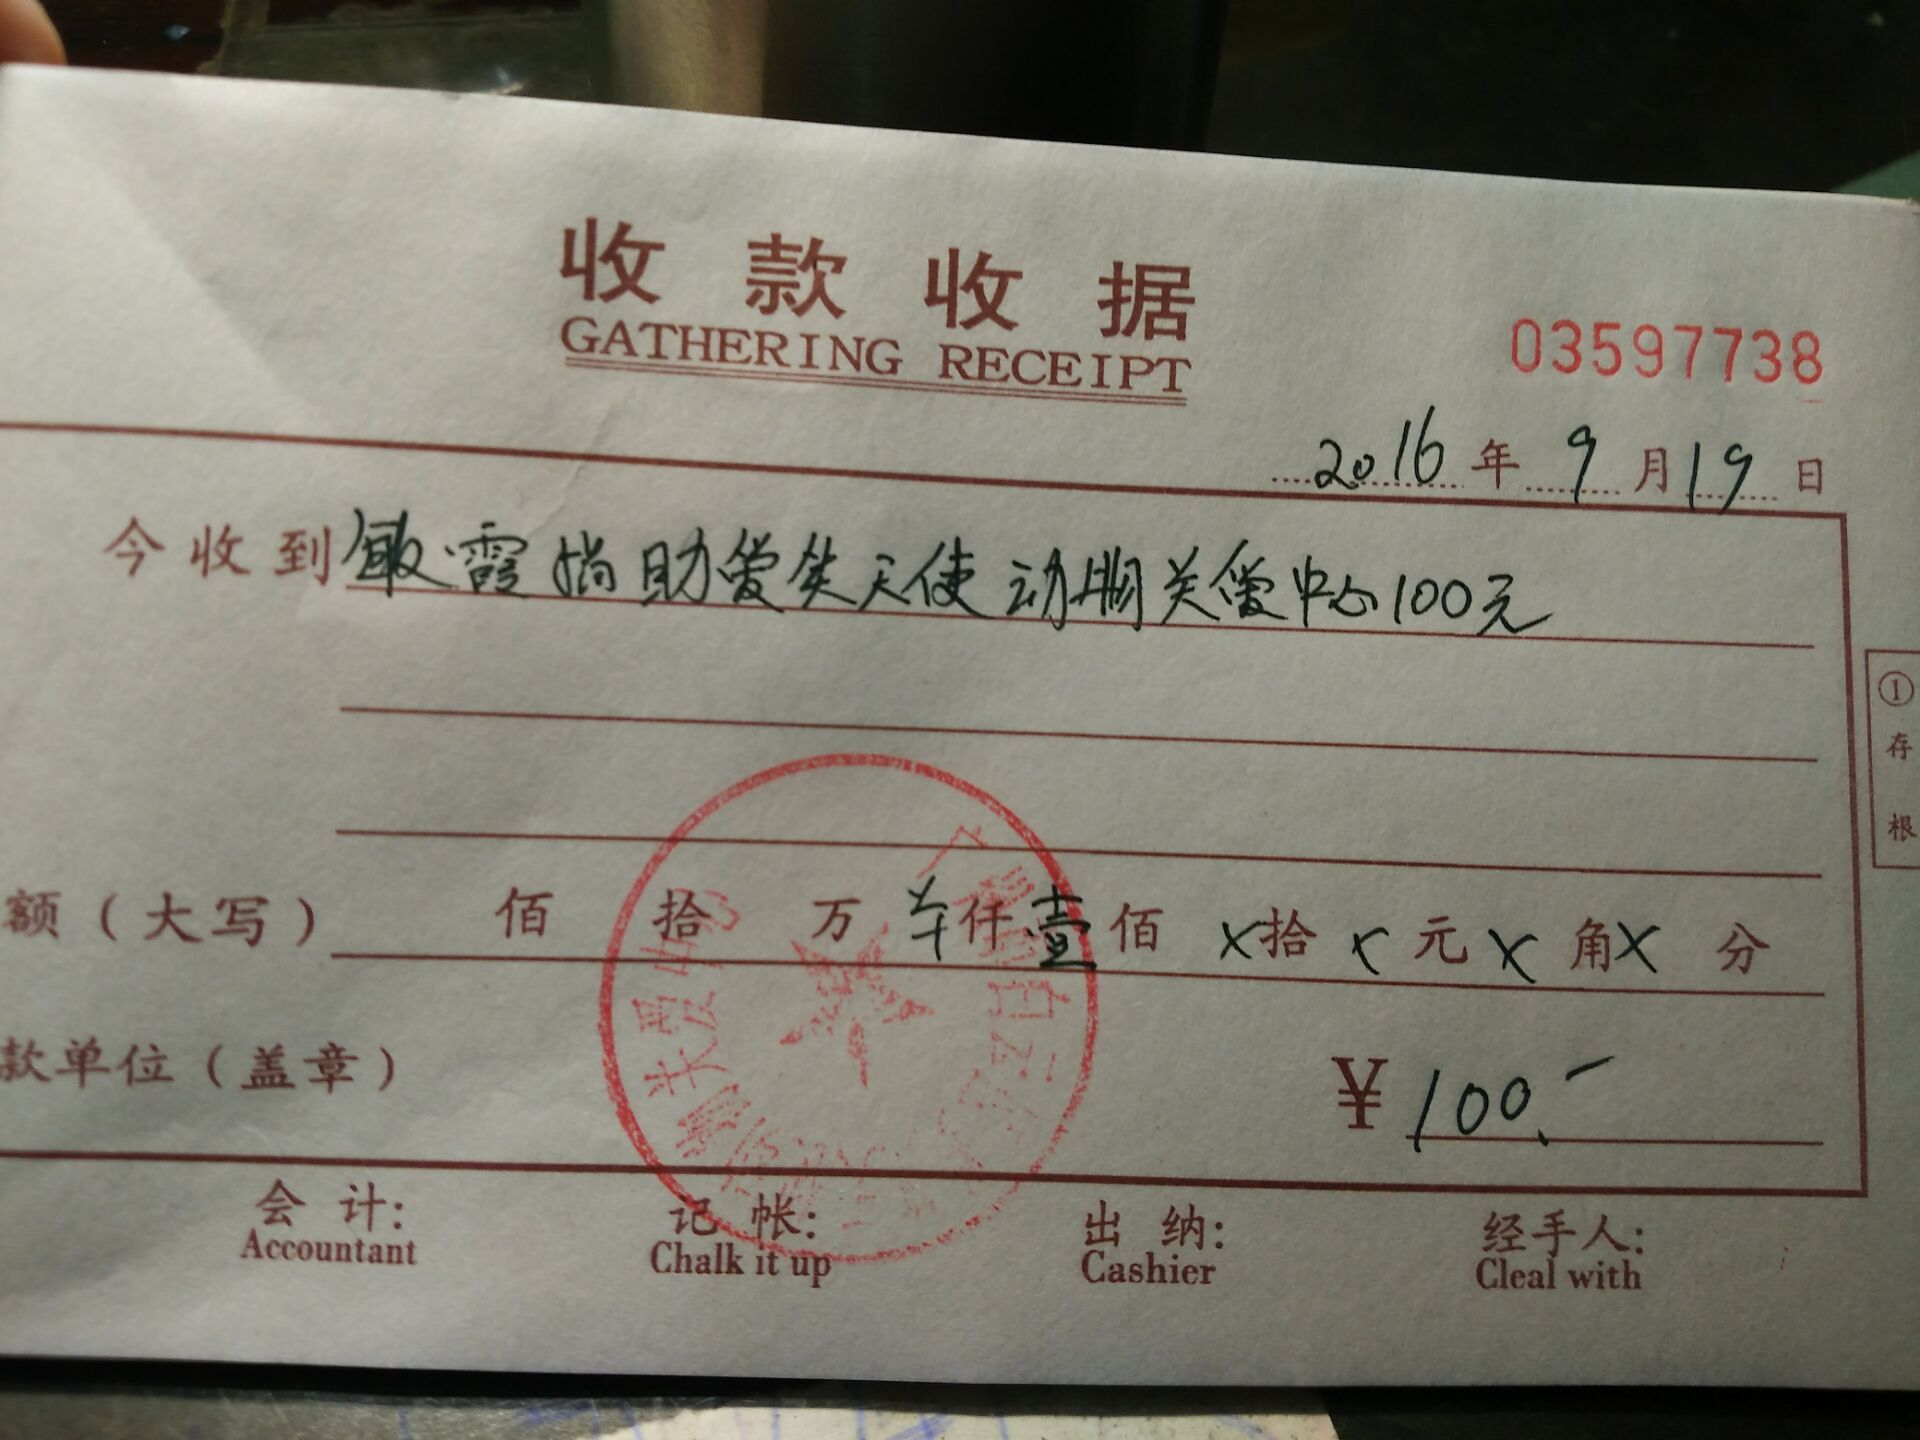 收款收据
GATHERING RECEIPT
03597738
2016年9月19日
今收到敏霞捐助爱类天使动物关爱中心100元
①存根
额（大写） 佰 拾 万 仟壹佰 X拾 X元 X角X分
款单位（盖章）
¥100.-
会计: 记帐: 出纳: 经手人:
Accountant Chalk it up Cashier Cleal with